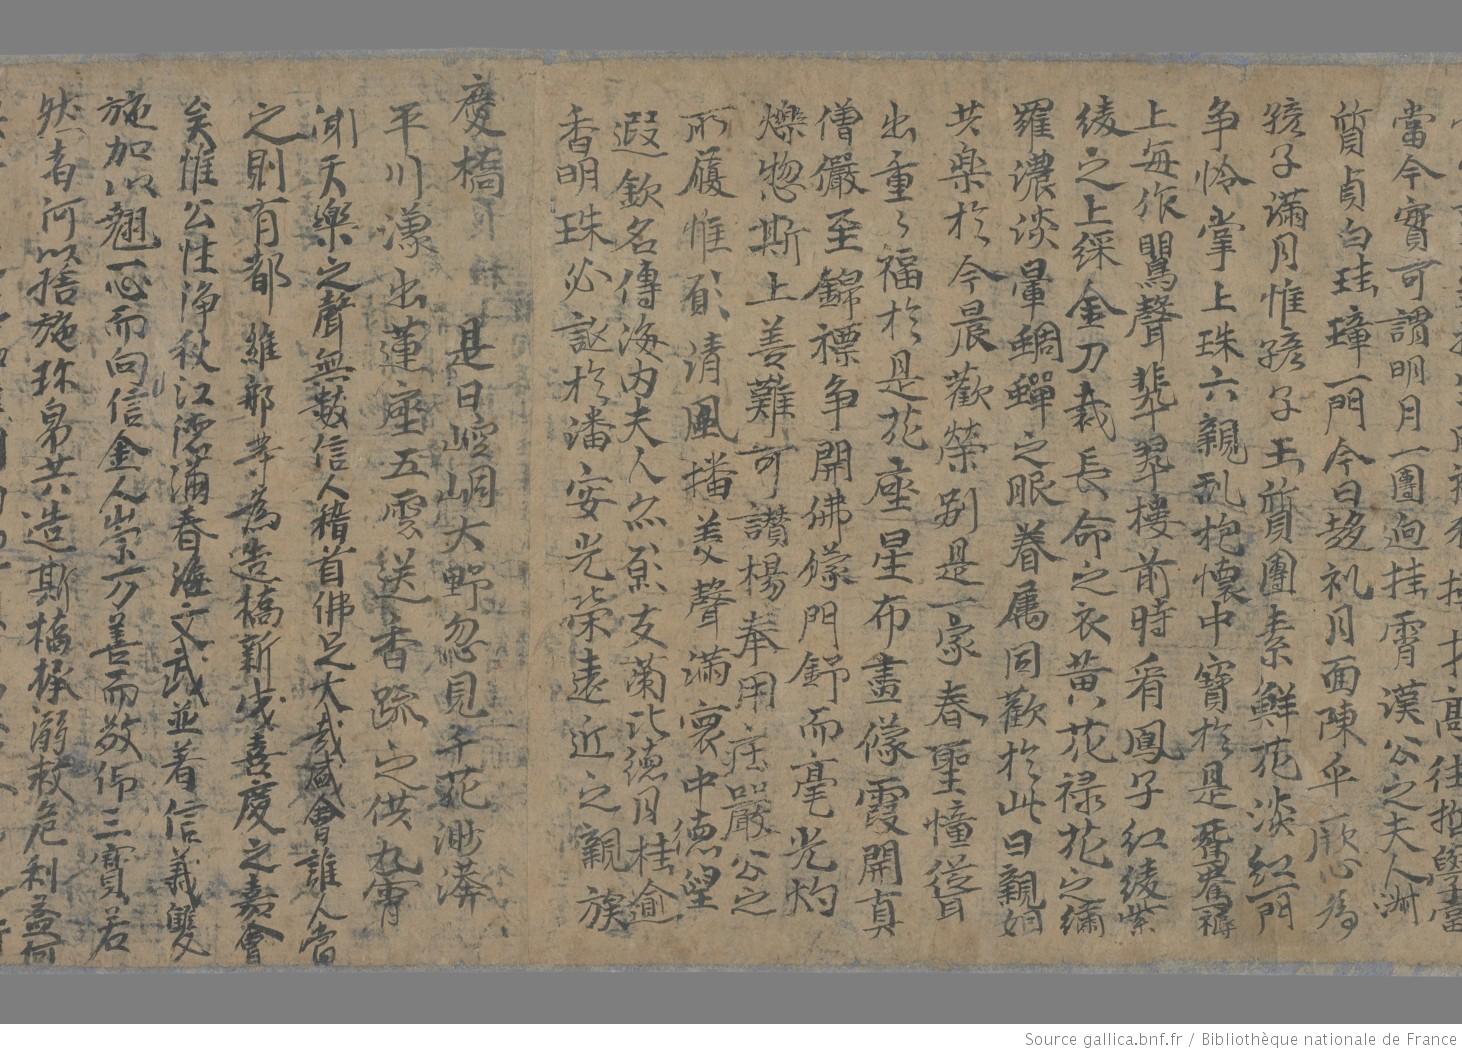 當今實可謂明月一團逈挂霄漢公之夫人淋
質貞白珪璋一門今日趍礼月面陳乎厥心為
孩子滿月惟孩子玉質團素鮮花淡紅一門
争怜掌上珠六親乱抱懷中寶於是鴛鴦褥
上每作鸎聲翡翠樓前時看鳳子紅綾紫
綾之上綵金刀裁長命之衣黄花禄花之繡
羅濃淡暈鵰鸇之眼眷属同歡於此日親姻
共楽於今晨歡榮别是一家春聖幢從
出重々福於是花座星布畫像霞開真
僧儼至錦褾争開佛像門舒而毫光灼
爍惣斯上善難可讃楊奉用莊嚴公之
所履惟願清風播美聲滿寰中德望
遐欽名傳海内夫人亦願支蘭比德月桂逾
香明珠必誕於潘安光榮遠近之親族
慶橋
是日崆峒大野忽見千花渺漭
平川濛出蓮座五雲送香蹤之供九霄
澍天樂之聲無數信人稽首佛足大哉咸會誰人當
之則有都維那等為造橋新成喜慶之嘉會
矣惟公性净秋江澄滿春海文武並着信義雙
施加以翹心而向信金人崇万善而敬仰三寶若
然者何以捨施珎帛共造斯橋拯溺救危利益何
Source gallica.bnf.fr / Bibliothèque nationale de France